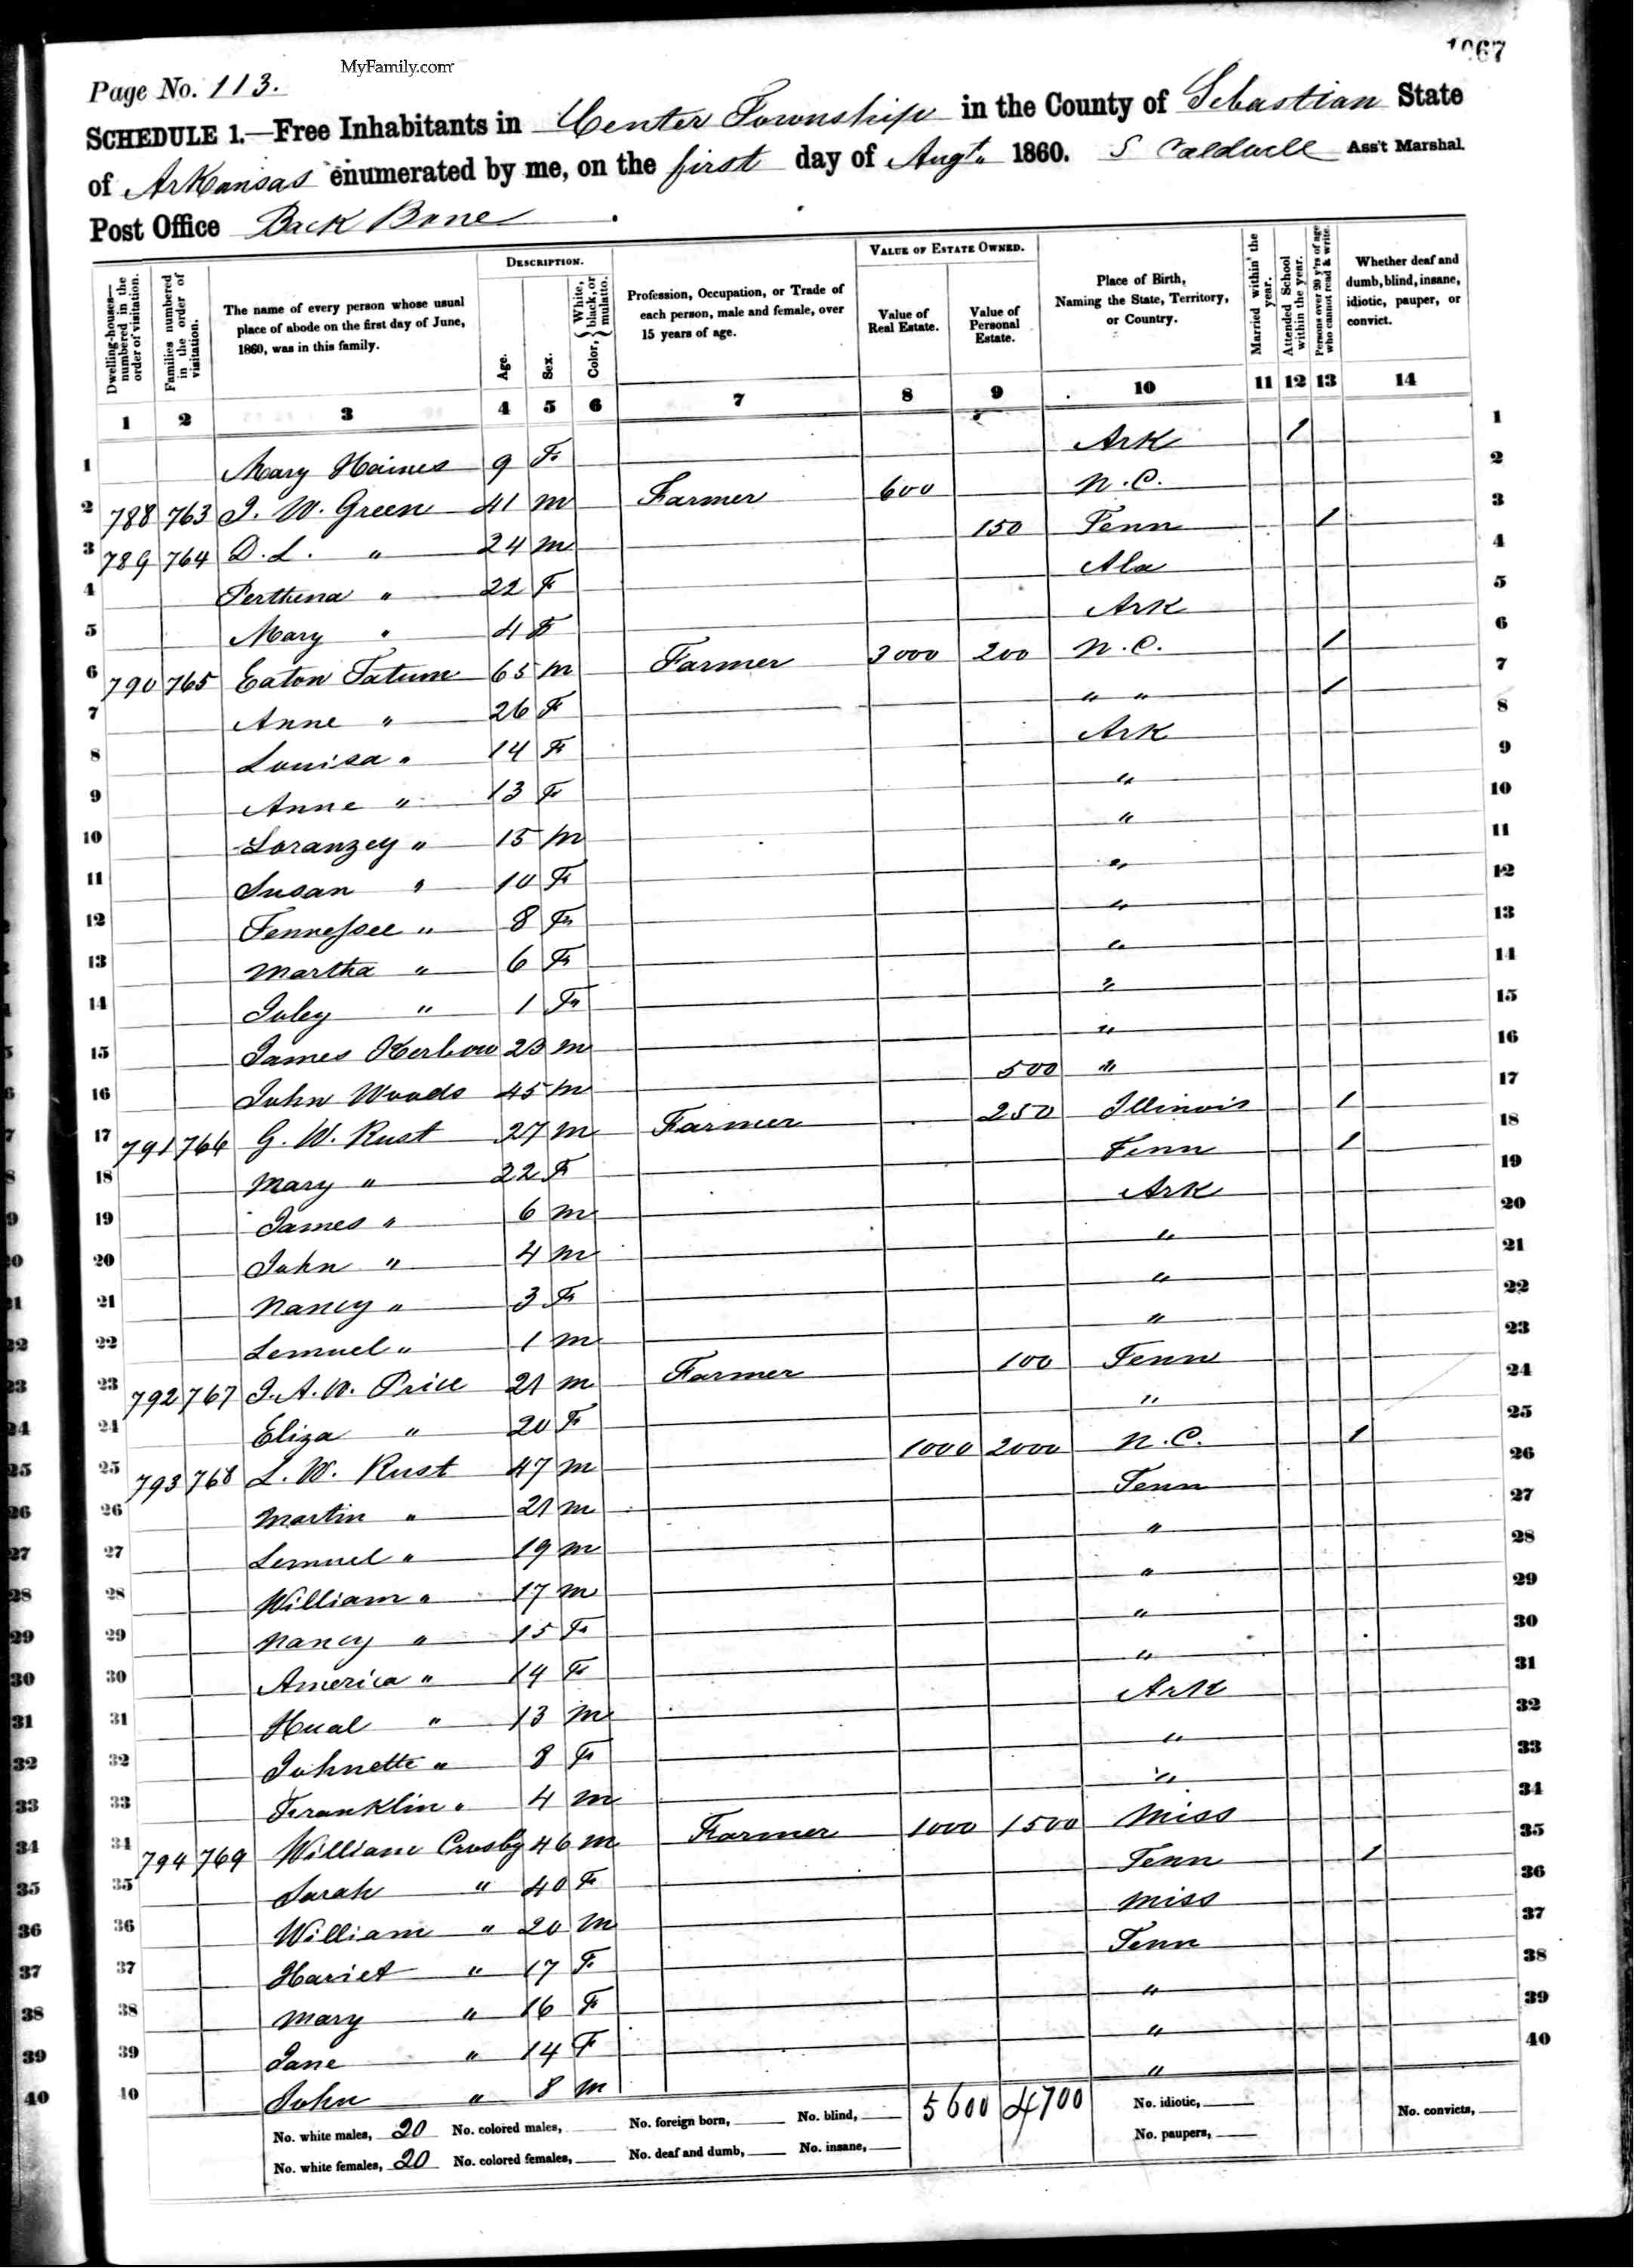 1067
MyFamily.com
Page No. 113.
SCHEDULE 1.—Free Inhabitants in Center Township in the County of Sebastian State
of Arkansas enumerated by me, on the first day of Augt. 1860. S Caldwell Ass't Marshal.
Post Office Back Bone
Dwelling-houses—numbered in the order of visitation. Families numbered in the order of visitation. The name of every person whose usual place of abode on the first day of June, 1860, was in this family. DESCRIPTION. Age. Sex. Color, { White, black, or mulatto. Profession, Occupation, or Trade of each person, male and female, over 15 years of age. VALUE OF ESTATE OWNED. Value of Real Estate. Value of Personal Estate. Place of Birth, Naming the State, Territory, or Country. Married within the year. Attended School within the year. Persons over 20 y'rs of age who cannot read & write. Whether deaf and dumb, blind, insane, idiotic, pauper, or convict.
1 2 3 4 5 6 7 8 9 10 11 12 13 14
1 Mary Haines 9 F Ark 1 1
2 788 763 J. W. Green 41 m Farmer 600 N.C. 2
3 789 764 D. L. " 24 m 150 Tenn 1 3
4 Perthena " 22 F Ala 4
5 Mary " 4 F Ark 5
6 790 765 Eaton Tatum 65 m Farmer 3000 200 N.C. 1 6
7 Anne " 26 F " " 1 7
8 Louisa " 14 F Ark 8
9 Anne " 13 F " 9
10 Loranzey " 15 m " 10
11 Susan " 10 F " 11
12 Tennessee " 8 F " 12
13 Martha " 6 F " 13
14 Juley " 1 F " 14
15 James 23 m " 15
16 John Woods 45 m 500 " 16
17 791 766 G. W. Rust 27 m Farmer 250 Illinois 1 17
18 Mary " 22 F Tenn 1 18
19 James " 6 m Ark 19
20 John " 4 m " 20
21 Nancy " 3 F " 21
22 Lemuel " 1 m " 22
23 792 767 J. A. W. Price 21 m Farmer 100 Tenn 23
24 Eliza " 20 F " 24
25 793 768 L. W. Rust 47 m 1000 2000 N.C. 1 25
26 Martin " 21 m Tenn 26
27 Lemuel " 19 m " 27
28 William " 17 m " 28
29 Nancy " 15 F " 29
30 America " 14 F " 30
31 Hual " 13 m Ark 31
32 Johnette " 8 F " 32
33 Franklin " 4 m " 33
34 794 769 William Crosby 46 m Farmer 1000 1500 Miss 34
35 Sarah " 40 F Tenn 1 35
36 William " 20 m Miss 36
37 Hariet " 17 F Tenn 37
38 Mary " 16 F " 38
39 Jane " 14 F " 39
40 John " 8 m " 40
No. white males, 20 No. colored males, No. foreign born, No. blind, 5600 4700 No. idiotic, No. convicts,
No. white females, 20 No. colored females, No. deaf and dumb, No. insane, No. paupers,